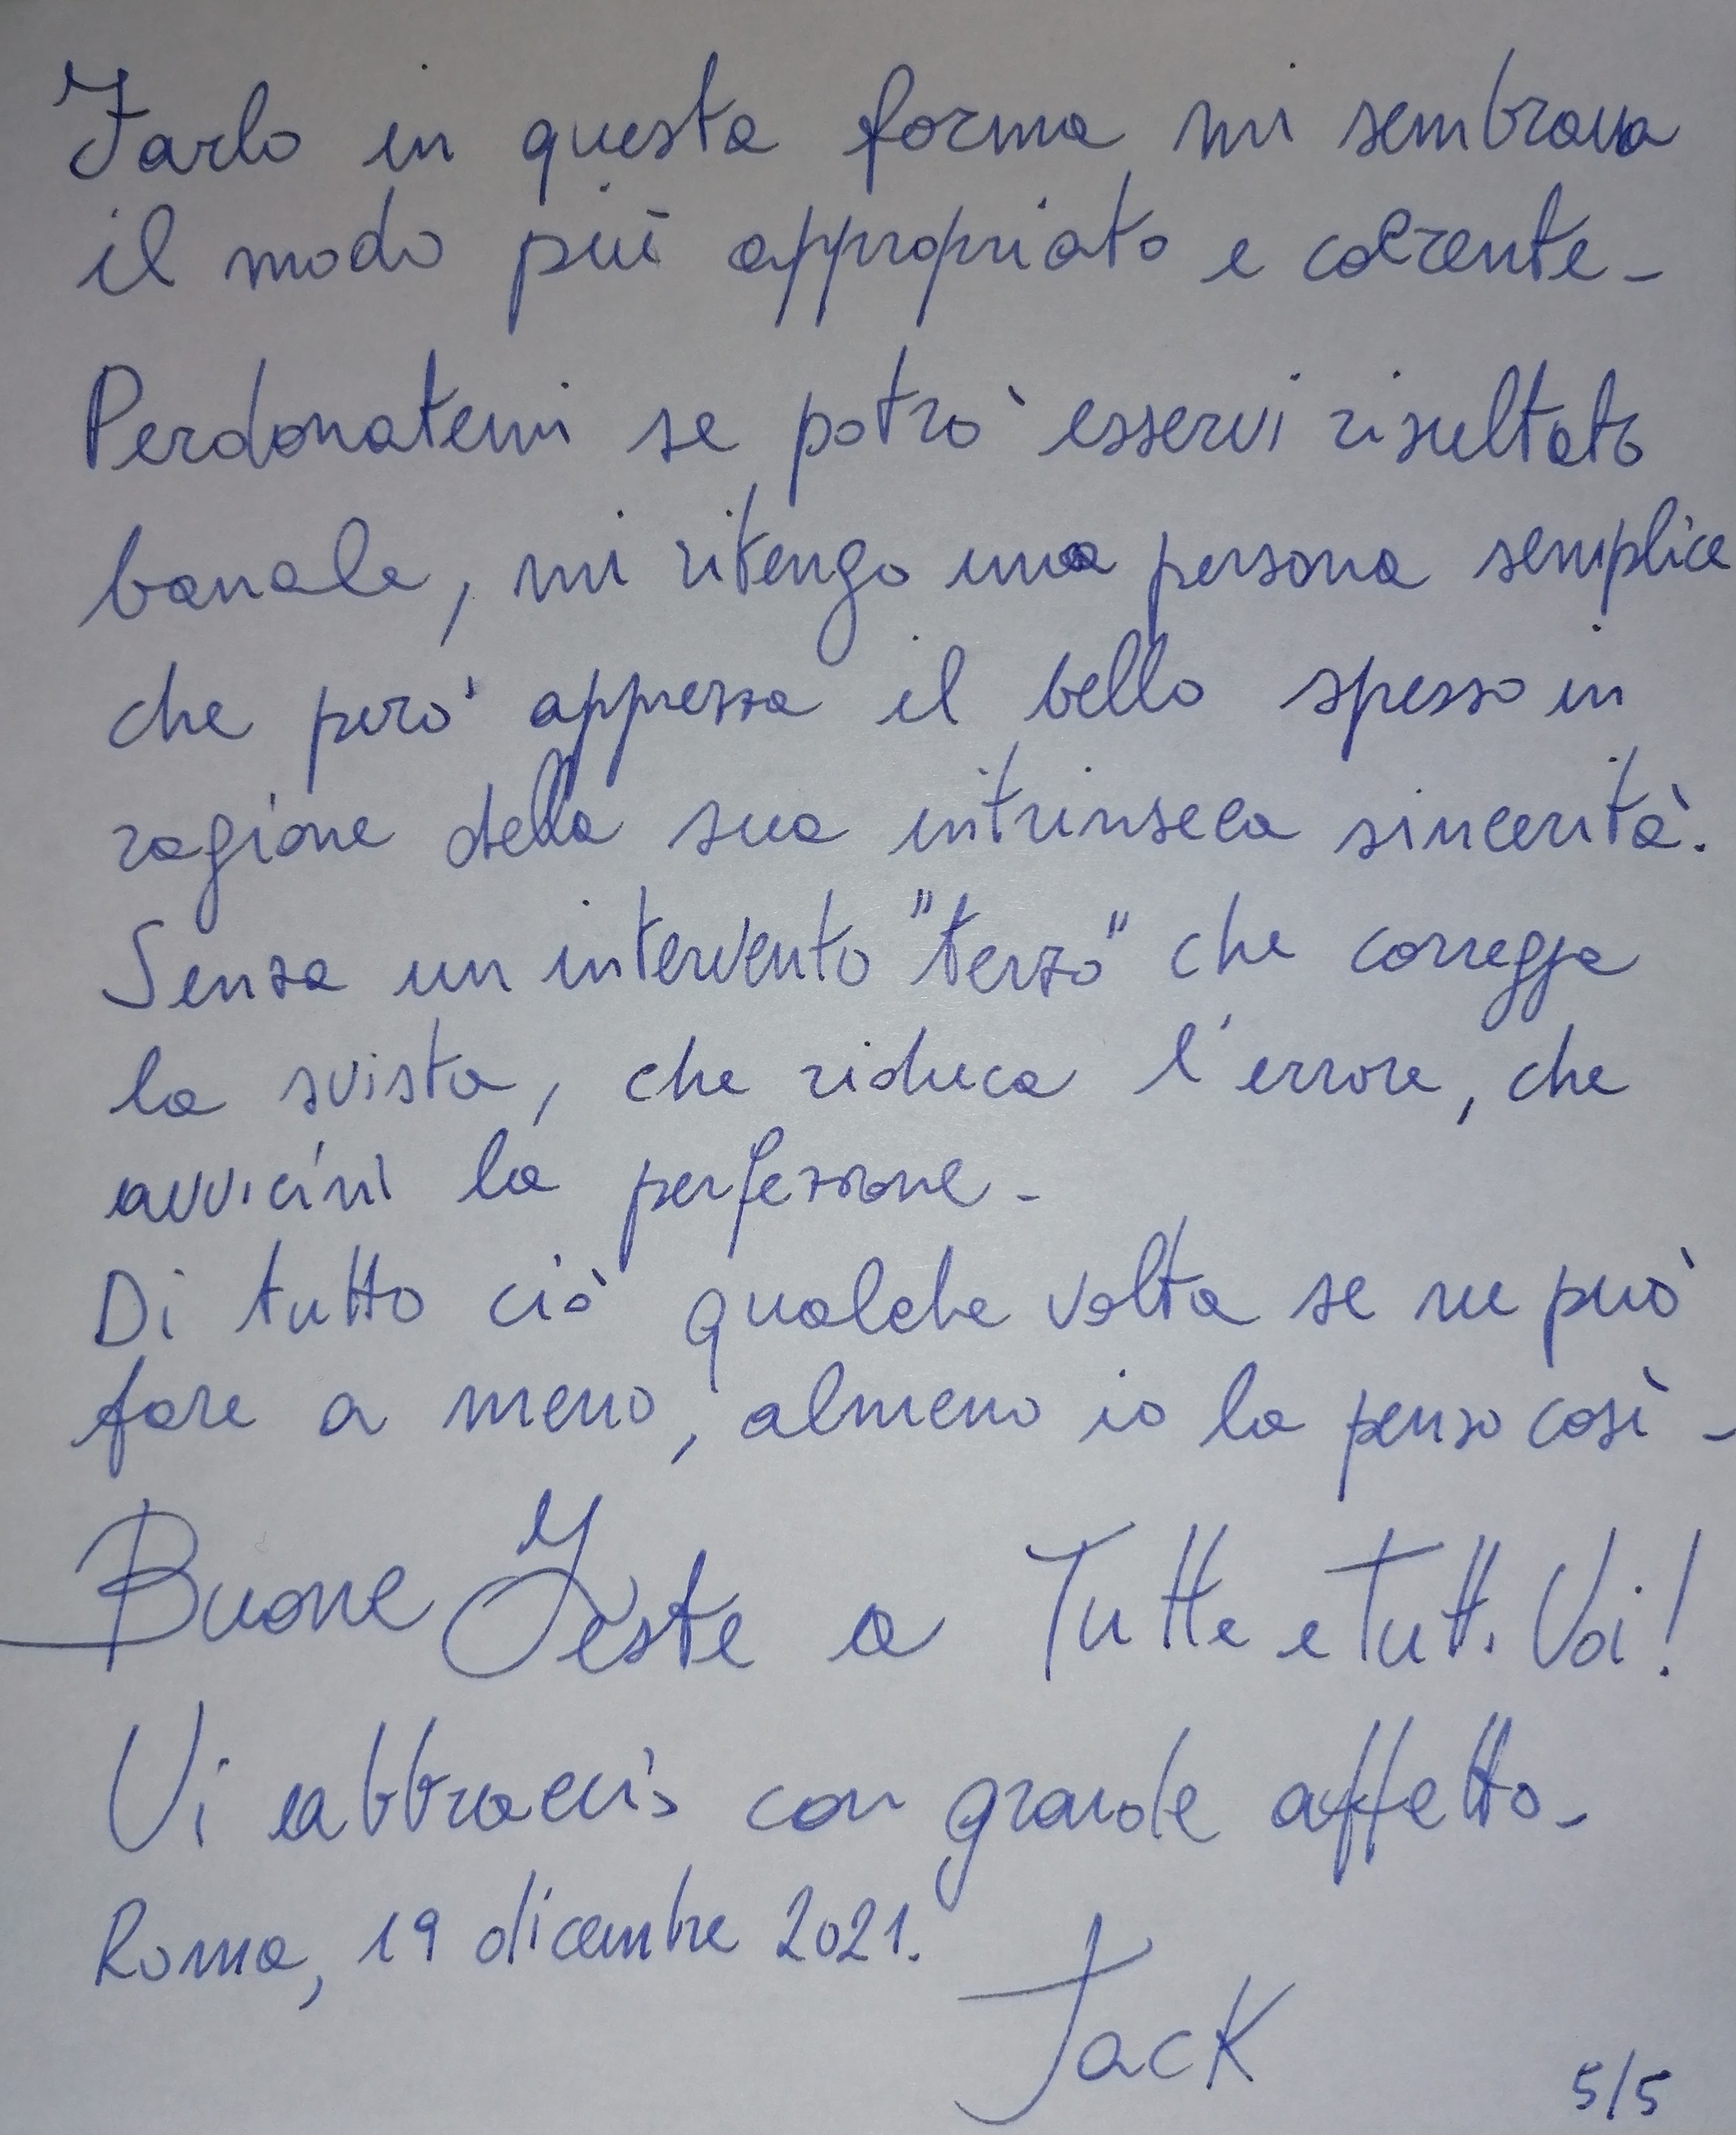 Farlo in questa forma mi sembrava
il modo più appropriato e coerente -
Perdonatemi se potrò esservi risultato
banale, mi ritengo una persona semplice
che però apprezza il bello spesso in
ragione della sua intrinseca sincerità.
Senza un intervento "terzo" che corregga
la svista, che riduca l'errore, che
avvicini la perfezione -
Di tutto ciò qualche volta se ne può
fare a meno, almeno io la penso così -
Buone Feste a Tutte e Tutti Voi!
Vi abbraccio con grande affetto -
Roma, 19 dicembre 2021.
Jack
5/5